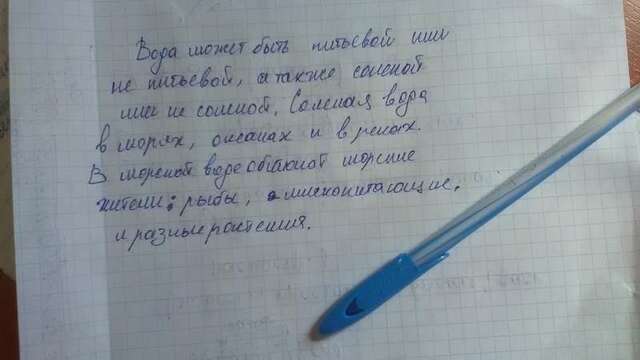 Вода может быть питьевой или
не питьевой, а также соленой
или не соленой. Соленая вода
в морях, океанах и в реках.
В морской воде обитают морские
жители: рыбы, млекопитающие,
и разные растения.